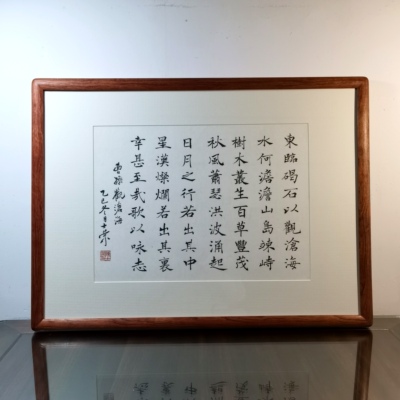 東臨碣石以觀滄海
水何澹澹山島竦峙
樹木叢生百草豐茂
秋風蕭瑟洪波涌起
日月之行若出其中
星漢燦爛若出其裏
幸甚至哉歌以咏志
曹操觀滄海
乙巳年